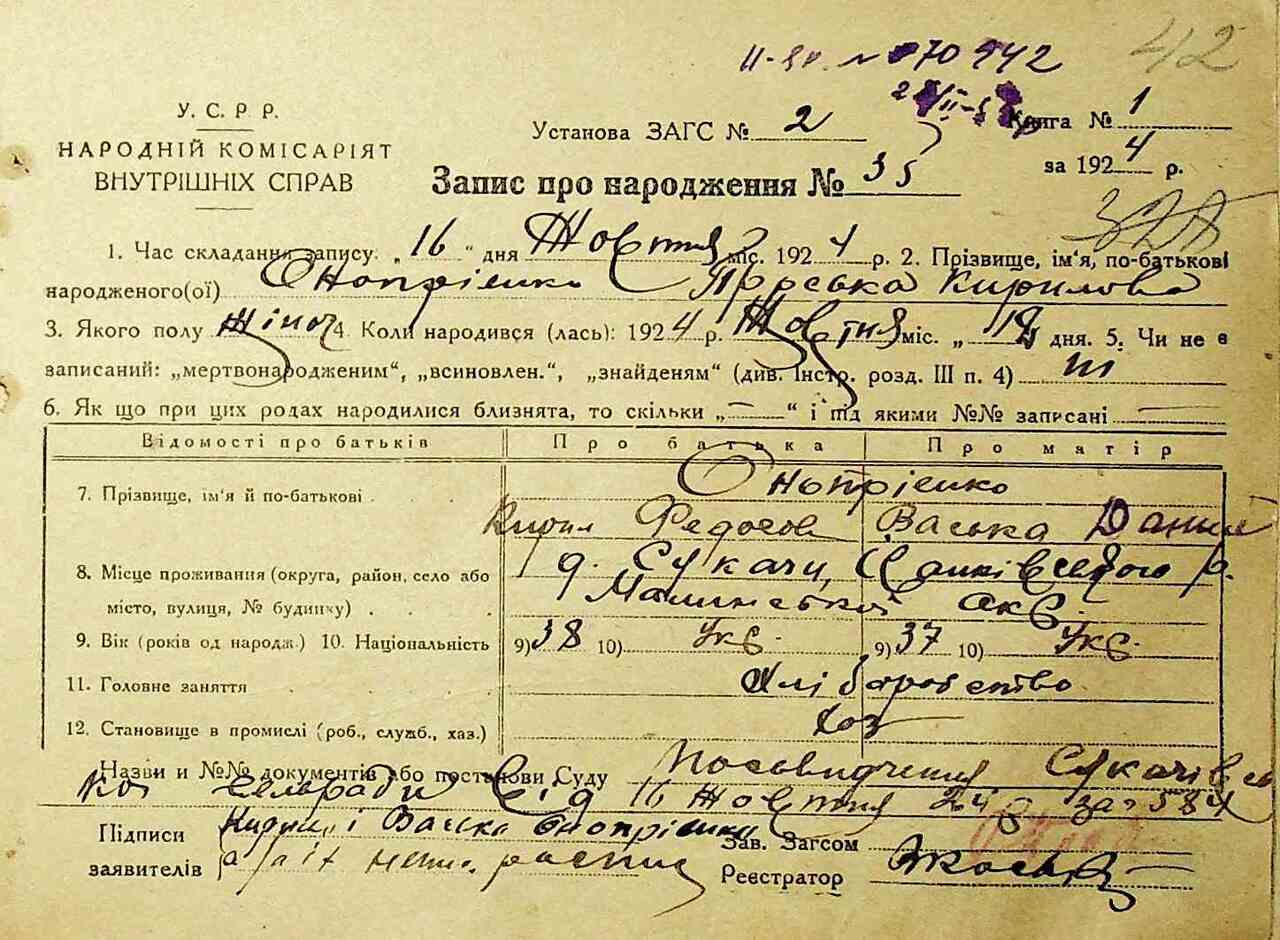 42
ІІ-ЯР. № 070442
У. С. Р Р.
НАРОДНІЙ КОМІСАРІЯТ
ВНУТРІШНІХ СПРАВ
Установа ЗАГС № 2
Книга № 1
за 1924 р.
Запис про народження № 35
1. Час складання запису: „16“ дня Жовтня міс. 1924 р. 2. Прізвище, ім'я, по-батькові
народженого(ої) Онопрієнко Кирилова
3. Якого полу жіноч 4. Коли народився (лась): 1924 р. Жовтня міс. „ дня. 5. Чи не є
записаний: „мертвонародженим“, „всиновлен.“, „знайденям“ (див. Інстр. розд. III п. 4)
6. Як що при цих родах народилися близнята, то скільки „—“ і під якими №№ записані —
Відомості про батьків Про батька Про матір
7. Прізвище, ім'я й по-батькові Онопрієнко
Кирил Федосов Васька Данил
8. Місце проживання (округа, район, село або д. Сукачи, Іванківського р.
місто, вулиця, № будинку) Малинської окр.
9. Вік (років од народж.) 10. Національність 9) 38 10) Укр. 9) 37 10) Укр.
11. Головне заняття Хліборобство
12. Становище в промислі (роб., служб., хаз.) Хаз
Назви и №№ документів або постанови Суду Посвидчення Сукачівсь
кої сельради від 16 Жовтня 24 р за № 584
Підписи Кирил і Васька Онопрієнки
заявителів а за їх непис. распис
Зав. Загсом
Реєстратор